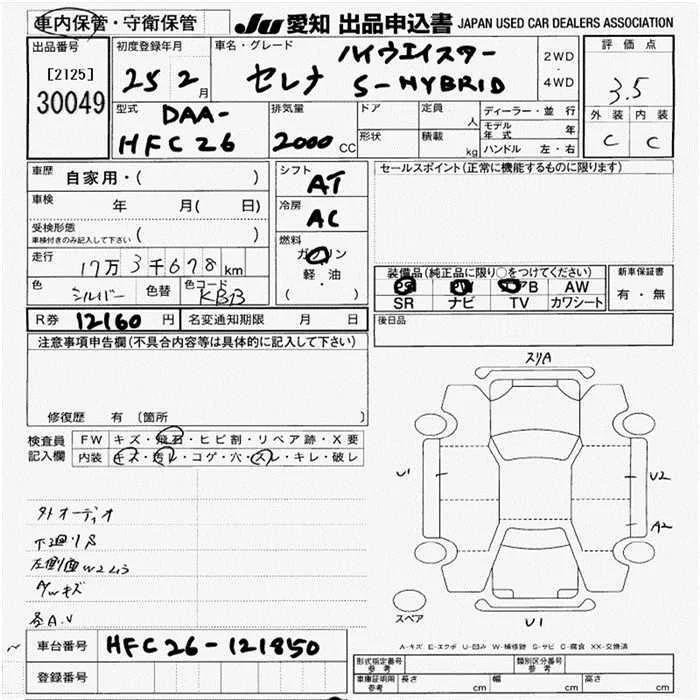 車内保管・守衛保管
JU 愛知 出品申込書 JAPAN USED CAR DEALERS ASSOCIATION
出品番号
[2125]
30049
初度登録年月
25 2月
車名・グレード
ハイウエイスター
セレナ S-HYBRID
2WD
・
4WD
評価点
3.5
外装 内装
C C
型式
DAA-
HFC26
排気量
2000 CC
ドア
形状
定員 人
積載 kg
ディーラー・並行
モデル年式 年
ハンドル 左・右
車歴
自家用・( )
車検 年 月( 日)
受検形態
車検付きのみ記入して下さい ( )
走行
17万3千678km
色 シルバー 色替 色コード KBB
シフト
AT
冷房
AC
燃料
ガソリン
軽・油
( )
セールスポイント(正常に機能するものに限ります)
装備品(純正品に限り○をつけてください)
AB AW
SR ナビ TV カワシート
新車保証書
有・無
後日品
R券 12160円 名変通知期限 月 日
注意事項申告欄(不具合内容等は具体的に記入して下さい)
修復歴 有 〔箇所 〕
検査員
記入欄
FW キズ・飛石・ヒビ割・リペア跡・X要
内装 キズ・汚レ・コゲ・穴・スレ・キレ・破レ
スリA
U1
U2
A2
U1
スペア
外オーディオ
下廻りS
左側面W2
AWキズ
各A.U
A-キズ E-エクボ U-凹み W-補修跡 S-サビ C-腐食 XX-交換済
車台番号 HFC26-121850
登録番号
形式指定番号
参考
類別区分番号
参考
車庫証明用
参考
長さ cm 幅 cm 高さ cm